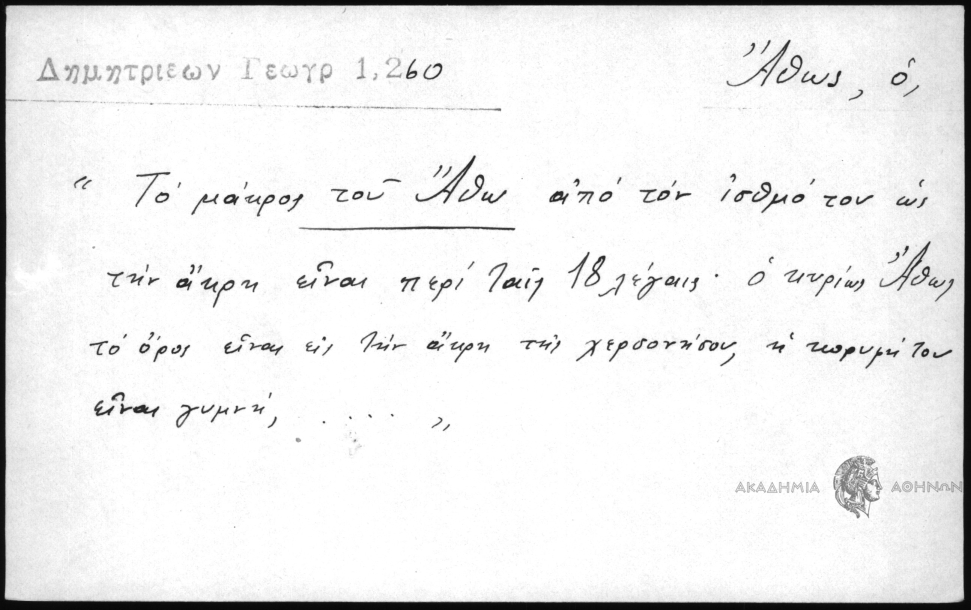 Δημητριεων Γεωγρ 1,260
Ἄθως, ὁ,
“ Τό μάκρος τοῦ Ἄθω ἀπό τόν ἰσθμό του ὡς
τήν ἄκρη εἶναι περί ταῖς 18 λέγαις· ὁ κυρίως Ἄθως
τό ὄρος εἶναι εἰς τήν ἄκρη τῆς χερσονήσου, ἡ κορυφή του
εἶναι γυμνή, . . . . „
ΑΚΑΔΗΜΙΑ ΑΘΗΝΩΝ